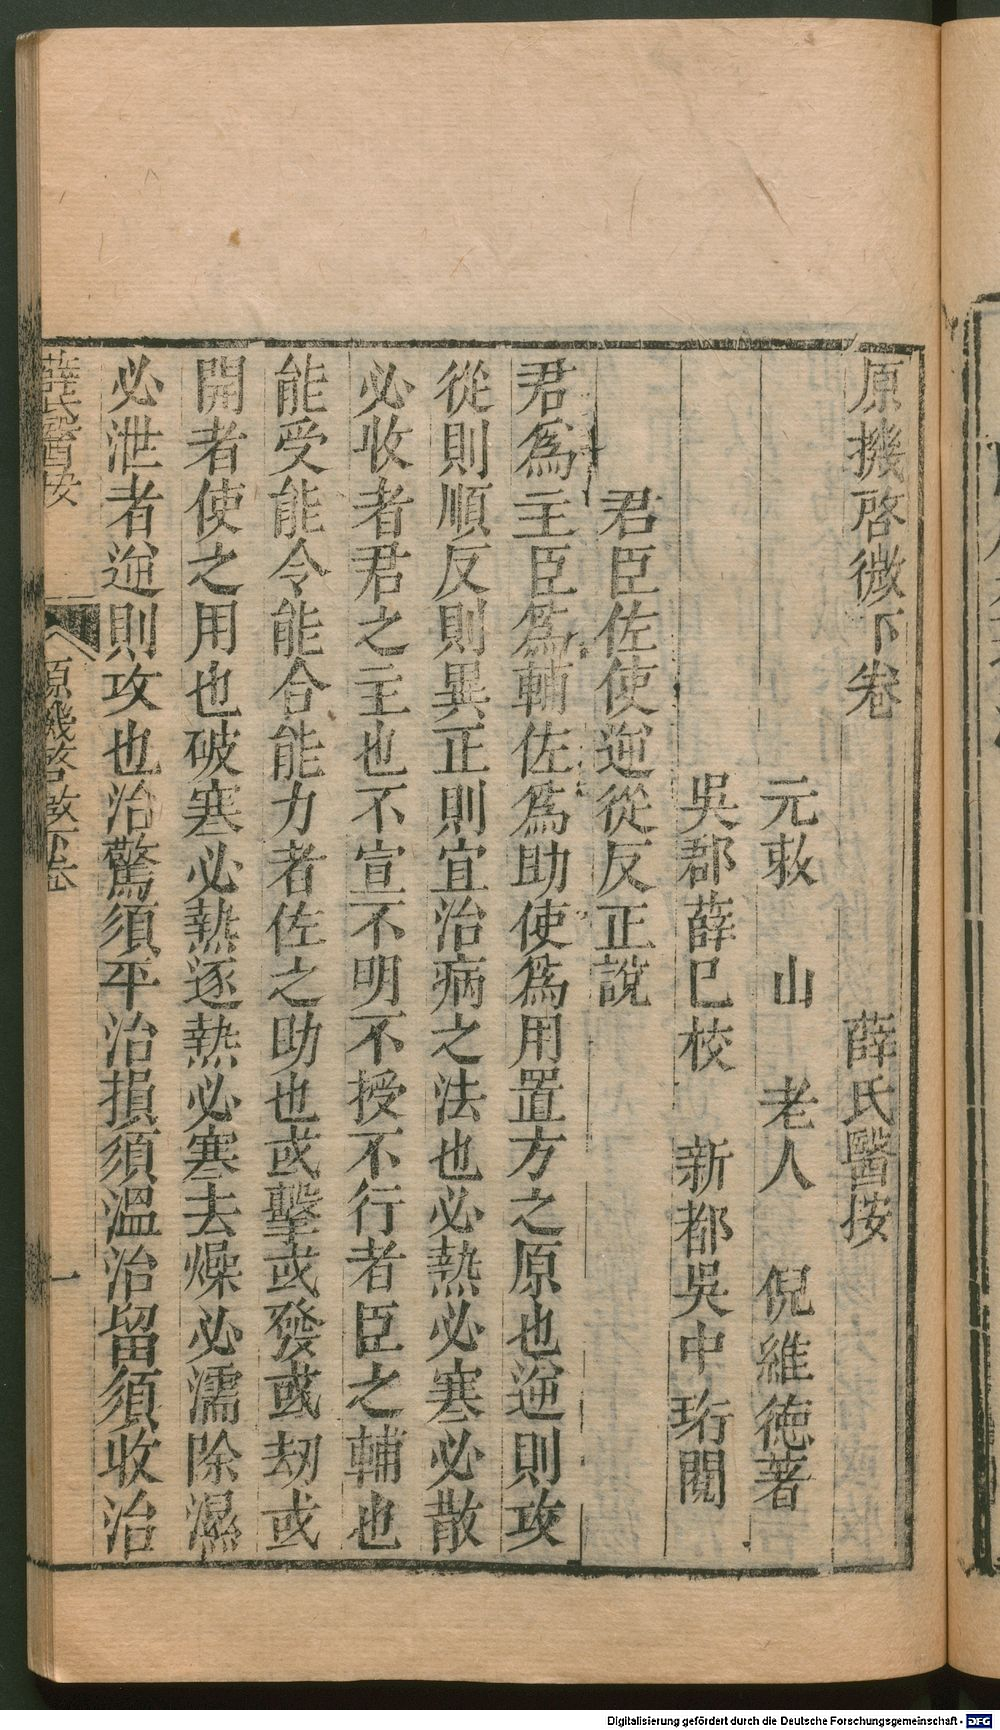 原機啓微下卷　　　　　薛氏醫按
元敕　山　老人　倪維德著
吳郡薛已校　新都吳中珩閱
君臣佐使逆從反正說
君爲主臣爲輔佐爲助使爲用置方之原也逆則攻
從則順反則異正則宜治病之法也必熱必寒必散
必收者君之主也不宣不明不授不行者臣之輔也
能受能令能合能力者佐之助也或擊或發或劫或
開者使之用也破寒必熱逐熱必寒去燥必濡除濕
必泄者逆則攻也治驚須平治損須溫治留須收治
薛氏醫按　原機啓微下卷　一
Digitalisierung gefördert durch die Deutsche Forschungsgemeinschaft - DFG